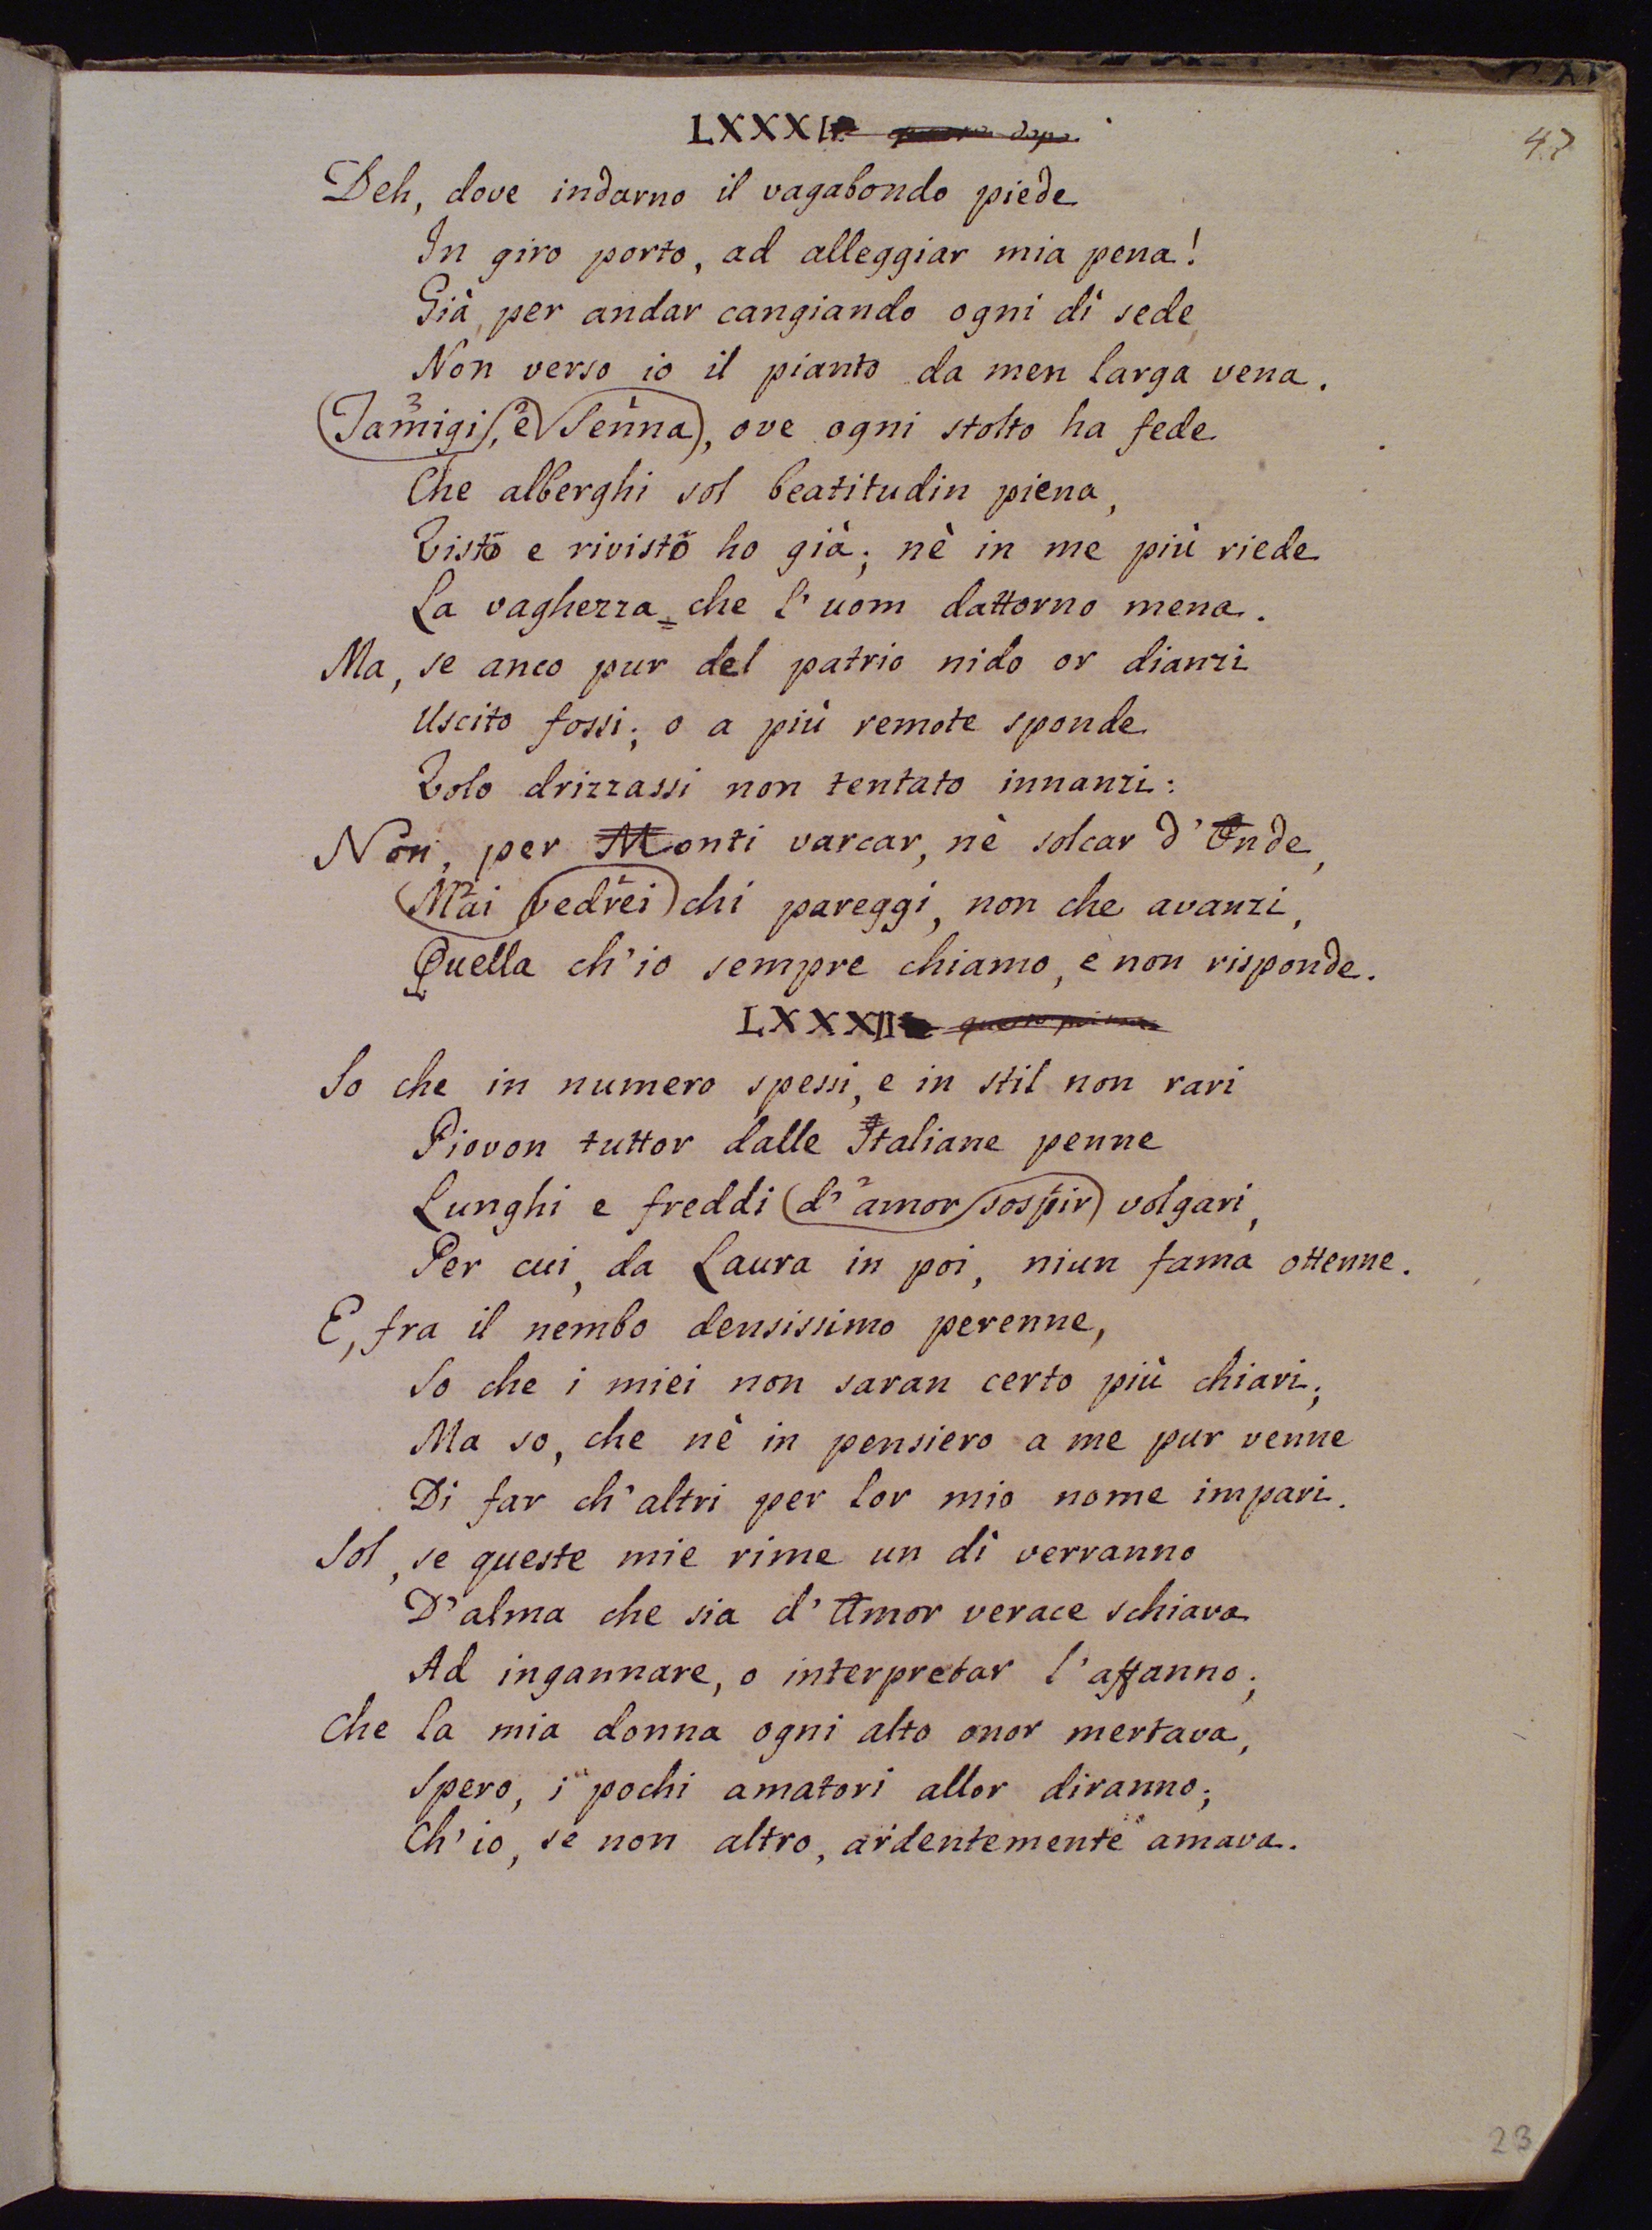 LXXXI
47
Deh, dove indarno il vagabondo piede
In giro porto, ad alleggiar mia pena!
Già, per andar cangiando ogni dì sede,
Non verso io il pianto da men larga vena.
Tamigi, e Senna, ove ogni stolto ha fede
Che alberghi sol beatitudin piena,
Visto e rivisto ho già; nè in me più riede
La vaghezza che l'uom dattorno mena.
Ma, se anco pur del patrio nido or dianzi
Uscito fossi; o a più remote sponde
Volo drizzassi non tentato innanzi:
Non, per Monti varcar, nè solcar d'Onde,
Mai vedrei chi pareggi, non che avanzi,
Quella ch'io sempre chiamo, e non risponde.
LXXXII
So che in numero spessi, e in stil non rari
Piovon tuttor dalle Italiane penne
Lunghi e freddi d'amor sospir volgari,
Per cui, da Laura in poi, niun fama ottenne.
E, fra il nembo densissimo perenne,
So che i miei non saran certo più chiari;
Ma so, che nè in pensiero a me pur venne
Di far ch'altri per lor mio nome impari.
Sol, se queste mie rime un dì verranno
D'alma che sia d'Amor verace schiava
Ad ingannare, o interpretar l'affanno;
Che la mia donna ogni alto onor mertava,
Spero, i pochi amatori allor diranno;
Ch'io, se non altro, ardentemente amava.
23